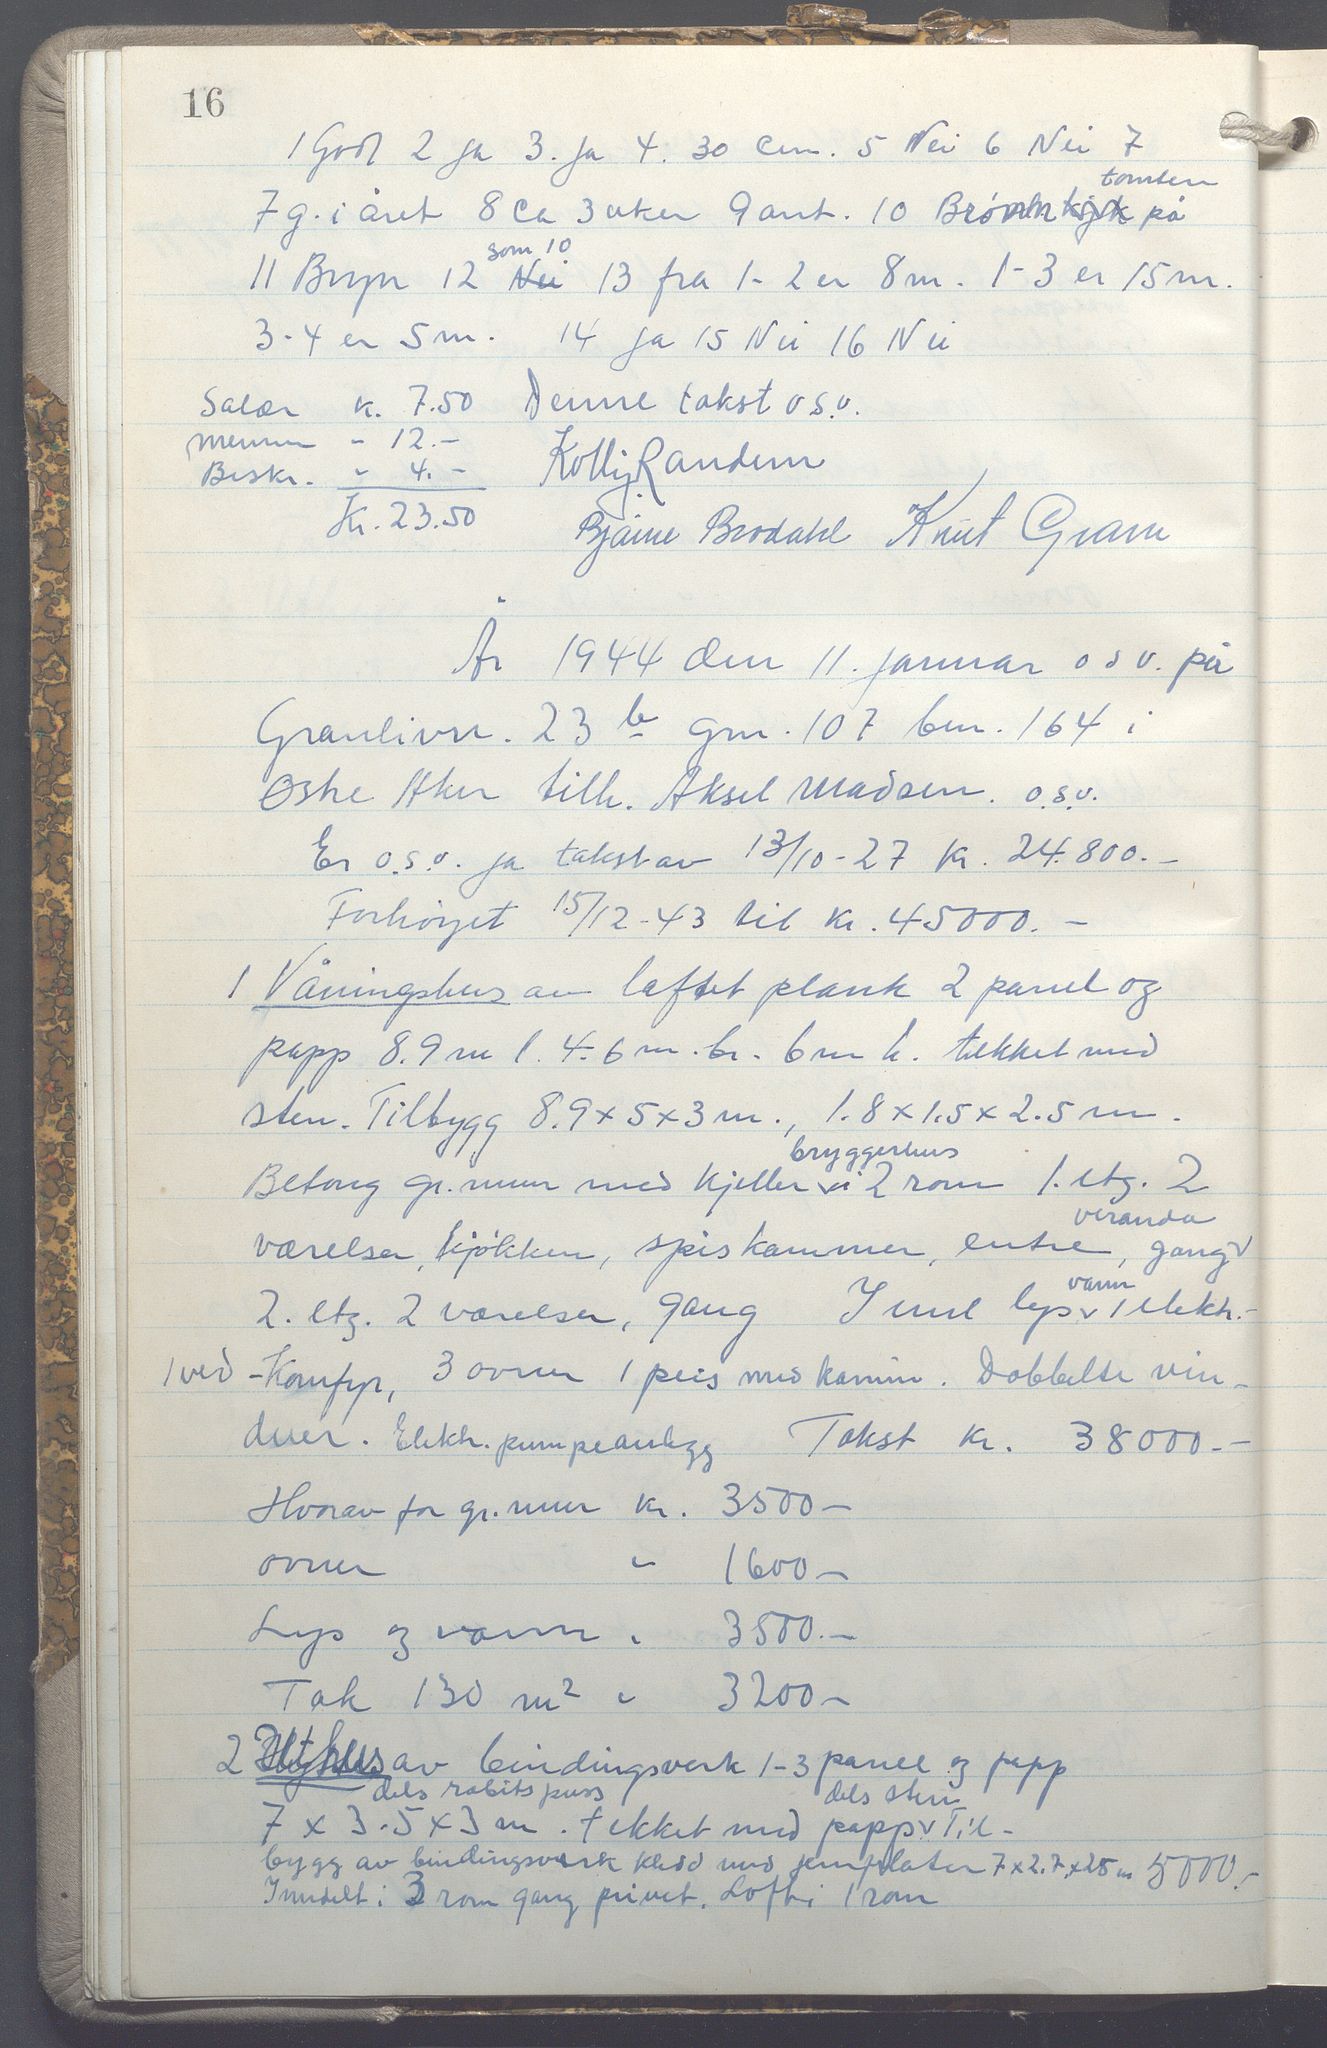 16
1 Godt 2 ja 3. ja 4. 30 cm. 5 Nei 6 Nei 7
tomten
7 g. i året 8 ca 3 uker 9 ant. 10 Brønn på
som 10
11 Bryn 12 Nei 13 fra 1-2 er 8m. 1-3 er 15m.
3-4 er 5m. 14 ja 15 Nei 16 Nei
Salær K. 7.50 Denne takst o.s.v.
" 12.-
Beskr. " 4.- Randem
Kr. 23.50
Bjarne Brodahl Knut Gram
År 1944 den 11. januar o s v. på
Granlivn. 23 b gnr. 107 bnr. 164 i
Østre Aker tilh. Aksel Madsen. o.s.v.
Er o.s.v. ja takst av 13/10-27 kr. 24.800.-
Forhøyet 15/12-43 til kr. 45000.-
1 Våningshus av laftet plank 2 panel og
papp 8.9 m l. 4.6 m. br. 6 m h. tekket med
sten. Tilbygg 8.9x5x3m., 1.8x1.5x2.5m.
bryggerhus
Betong gr.mur med kjeller v i 2 rom 1. etg. 2
veranda
værelser, kjøkken, spiskammer, entre, gang v
vann
2. etg. 2 værelser, gang Innl lys v 1 elektr.-
1 ved - Komfyr, 3 ovner 1 peis med kamin. Dobbelte vin-
duer. Elektr. pumpeanlegg Takst kr. 38000.-
Hvorav for gr.mur kr. 3500-
ovner " 1600-
Lys og vann " 3500.-
Tak 130 m² " 3200-
2 Uthus av bindingsverk 1-3 panel og papp
dels rabitspuss dels sten
7 x 3.5 x 3 m. tekket med papp v Til-
bygg av bindingsverk kledd med jernplater 7x2.7x25 m 5000.-
Inndelt i 3 rom gang privet. Loft i 1 rom